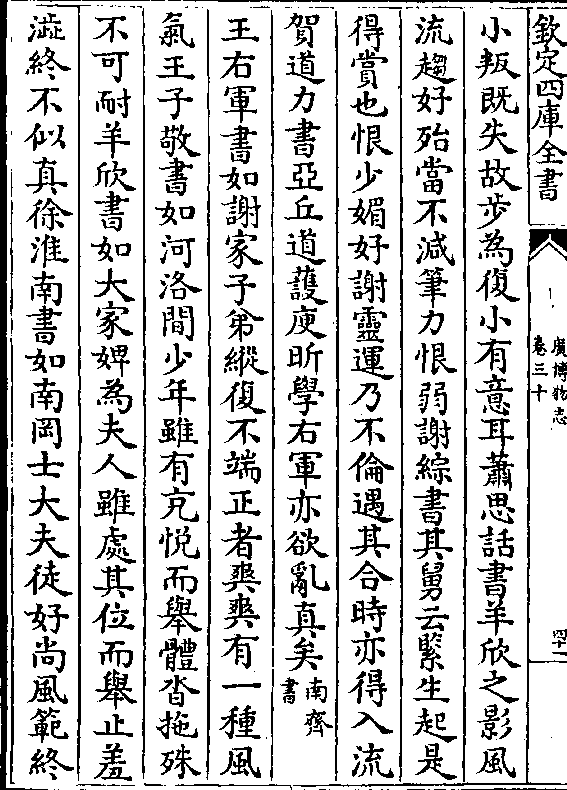 欽定四庫全書
廣博物志
卷三十
四十一
小叛既失故步為復小有意耳蕭思話書羊欣之影風
流趨好殆當不減筆力恨弱謝綜書其舅云緊生起是
得賞也恨少媚好謝靈運乃不倫遇其合時亦得入流
賀道力書亞丘道護庾昕學右軍亦欲亂真矣南齊
書
王右軍書如謝家子弟縱復不端正者爽爽有一種風
氣王子敬書如河洛間少年雖有充悅而舉體沓拖殊
不可耐羊欣書如大家婢為夫人雖處其位而舉止羞
澁終不似真徐淮南書如南岡士大夫徒好尚風範終